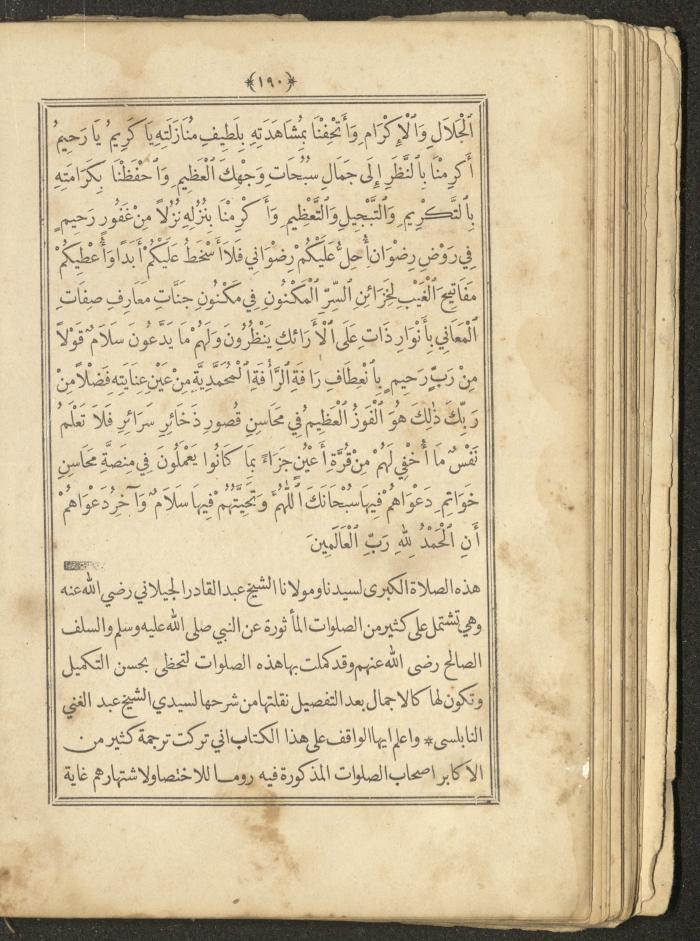 ﴿١٩٠﴾
الْجَلَالِ وَالْإِكْرَامِ وَأَتْحِفْنَا بِمُشَاهَدَتِهِ بِلَطِيفِ مُنَازَلَتِهِ يَا كَرِيمُ يَا رَحِيمُ
أَكْرِمْنَا بِالنَّظَرِ إِلَى جَمَالِ سُبُحَاتِ وَجْهِكَ الْعَظِيمِ وَاحْفَظْنَا بِكَرَامَتِهِ
بِالتَّكْرِيمِ وَالتَّبْجِيلِ وَالتَّعْظِيمِ وَأَكْرِمْنَا بِنُزُلِهِ نُزُلًا مِنْ غَفُورٍ رَحِيمٍ
فِي رَوْضِ رِضْوَانِ أُحِلُّ عَلَيْكُمْ رِضْوَانِي فَلَا أَسْخَطُ عَلَيْكُمْ أَبَدًا وَأُعْطِيكُمْ
مَفَاتِيحَ الْغَيْبِ لِخَزَائِنِ السِّرِّ الْمَكْنُونِ فِي مَكْنُونِ جَنَّاتِ مَعَارِفِ صِفَاتِ
الْمَعَانِي بِأَنْوَارِ ذَاتِ عَلَى الْأَرَائِكِ يَنْظُرُونَ وَلَهُمْ مَا يَدَّعُونَ سَلَامٌ قَوْلًا
مِنْ رَبٍّ رَحِيمٍ بِانْعِطَافِ رَافَةِ الرَّأْفَةِ الْمُحَمَّدِيَّةِ مِنْ عَيْنِ عِنَايَتِهِ فَضْلًا مِنْ
رَبِّكَ ذَلِكَ هُوَ الْفَوْزُ الْعَظِيمُ فِي مَحَاسِنِ قُصُورِ ذَخَائِرِ سَرَائِرِ فَلَا تَعْلَمُ
نَفْسٌ مَا أُخْفِيَ لَهُمْ مِنْ قُرَّةِ أَعْيُنٍ جَزَاءً بِمَا كَانُوا يَعْمَلُونَ فِي مِنَصَّةِ مَحَاسِنِ
خَوَاتِمِ دَعْوَاهُمْ فِيهَا سُبْحَانَكَ اللّٰهُمَّ وَتَحِيَّتُهُمْ فِيهَا سَلَامٌ وَآخِرُ دَعْوَاهُمْ
أَنِ الْحَمْدُ لِلّٰهِ رَبِّ الْعَالَمِينَ
هذه الصلاة الكبرى لسيدنا ومولانا الشيخ عبد القادر الجيلاني رضي الله عنه
وهي تشتمل على كثير من الصلوات المأثورة عن النبي صلى الله عليه وسلم والسلف
الصالح رضي الله عنهم وقد كملت بها هذه الصلوات لتحظى بحسن التكميل
وتكون لها كالاجمال بعد التفصيل نقلتها من شرحها لسيدي الشيخ عبد الغني
النابلسى * واعلم ايها الواقف على هذا الكتاب اني تركت ترجمة كثير من
الاكابر اصحاب الصلوات المذكورة فيه روما للاختصا ولاشتهارهم غاية